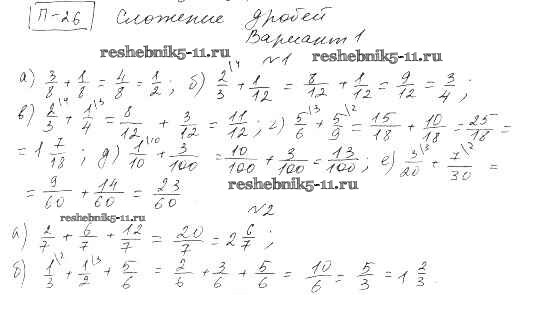 П-26 Сложение дробей
Вариант 1
reshebnik5-11.ru
№1 reshebnik5-11.ru
а) 3/8 + 1/8 = 4/8 = 1/2; б) 2/3^\4 + 1/12 = 8/12 + 1/12 = 9/12 = 3/4;
в) 2/3^\4 + 1/4^\3 = 8/12 + 3/12 = 11/12; г) 5/6^\3 + 5/9^\2 = 15/18 + 10/18 = 25/18 =
= 1 7/18; д) 1/10^\10 + 3/100 = 10/100 + 3/100 = 13/100; е) 3/20^\3 + 7/30^\2 =
= 9/60 + 14/60 = 23/60
reshebnik5-11.ru
reshebnik5-11.ru №2
а) 2/7 + 6/7 + 12/7 = 20/7 = 2 6/7;
б) 1/3^\2 + 1/2^\3 + 5/6 = 2/6 + 3/6 + 5/6 = 10/6 = 5/3 = 1 2/3